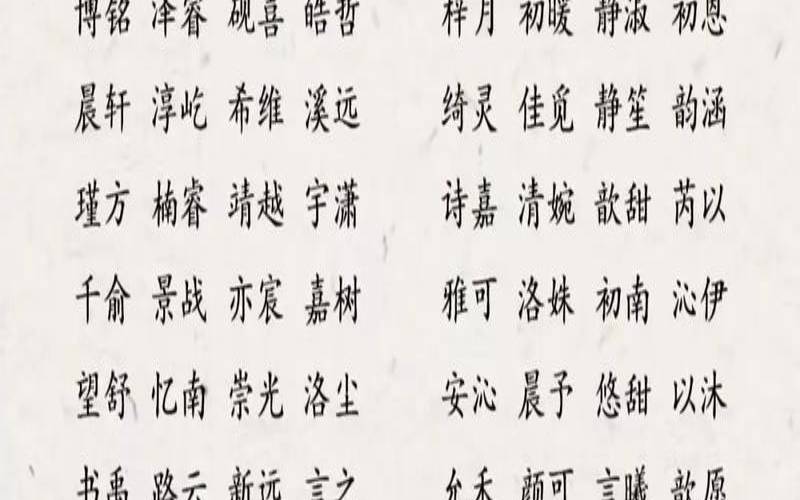 博铭 泽睿 砚喜 皓哲 梓月 初暖 静淑 初恩
晨轩 淳屹 希维 溪远 绮灵 佳觅 静笙 韵涵
瑾方 楠睿 靖越 宇潇 诗嘉 清婉 歆甜 芮以
千俞 景战 亦宸 嘉树 雅可 洛姝 初南 沁伊
望舒 忆南 崇光 洛尘 安沁 晨予 悠甜 以沐
书禹 路云 新远 言之 允禾 颜可 言曦 歆愿